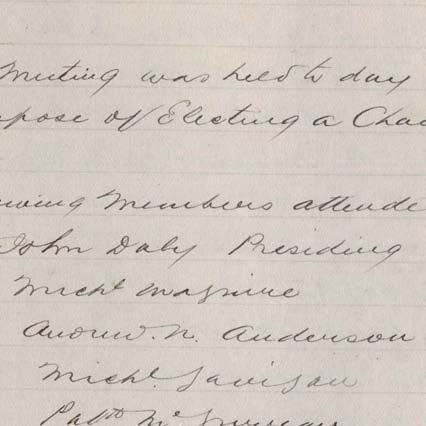 Meeting was held to day
pose of Electing a Cha
wing Members attende
John Daly Presiding
Michl Maguire
Andrew. N. Anderson
Michl
Patk Mc